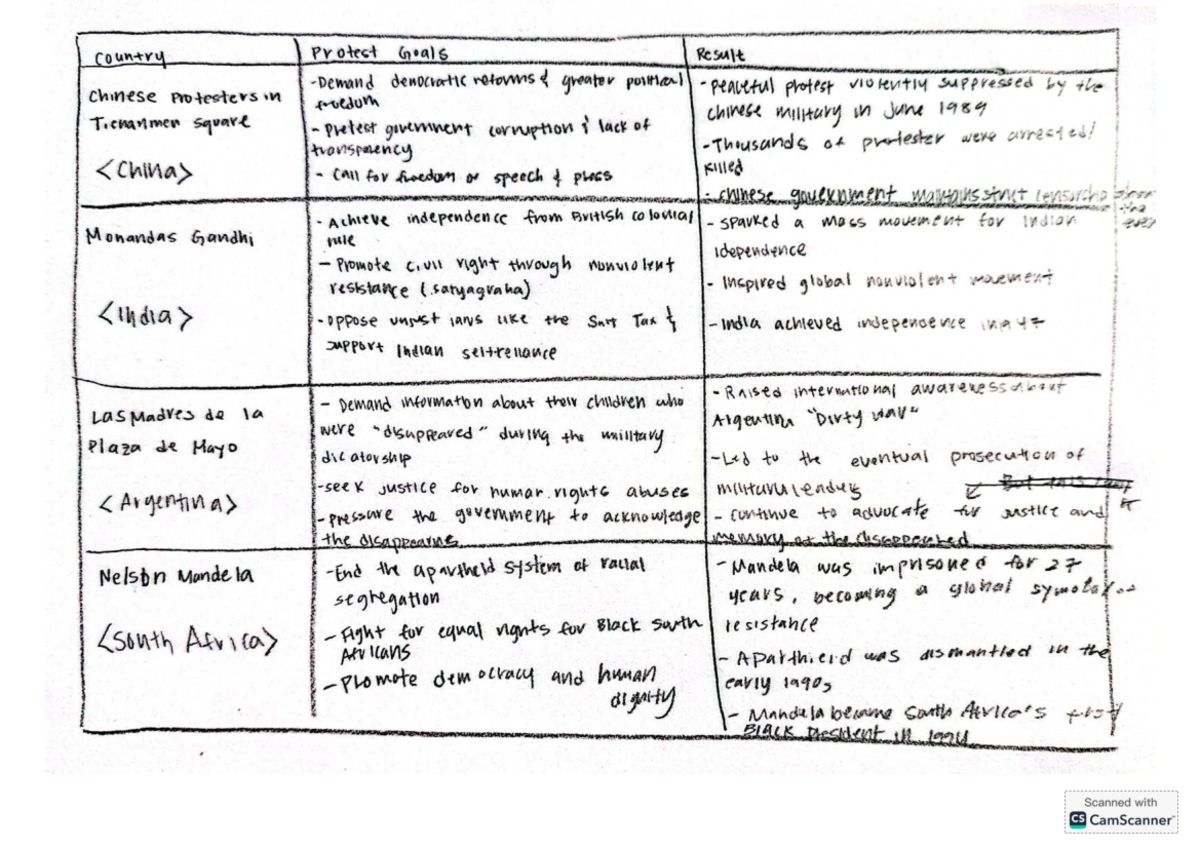 Country
Protest Goals
Result
Chinese Protesters in
Tienanmen Square
<China>
-Demand democratic reforms & greater political
freedom
- Protest government corruption & lack of
transparency
- Call for freedom of speech & press
- Peaceful protest violently suppressed by the
chinese military in June 1989
-Thousands of protester were arrested/
killed
- chinese government maintains strict
the
Monandas Gandhi
<India>
- Achieve independence from British colonial
rule
- Promote civil right through nonviolent
resistance (satyagraha)
-oppose unjust laws like the Salt Tax &
support Indian selfreliance
- Sparked a mass movement for Indian
idependence
- Inspired global nonviolent movement
- India achieved independence in
Las Madres de la
Plaza de Mayo
<Argentina>
- Demand information about their children who
were "disappeared" during the military
dicatorship
-seek justice for human rights abuses
-pressure the government to acknowledge
the
- Raised international awareness about
"Dirty war"
-Led to the eventual prosecution of
military leaders
- continue to advocate for justice and
memory of the disappeared
Nelson Mandela
<South Africa>
-End the apartheid system of racial
segregation
- Fight for equal rights for Black South
Africans
- Promote democracy and human
dignity
- Mandela was imprisoned for 27
years, becoming a global
resistance
- Aparthieid was dismantled in the
early 1990s
- Mandela became South Africa's first
BLACK President in 1994
Scanned with
CS CamScanner